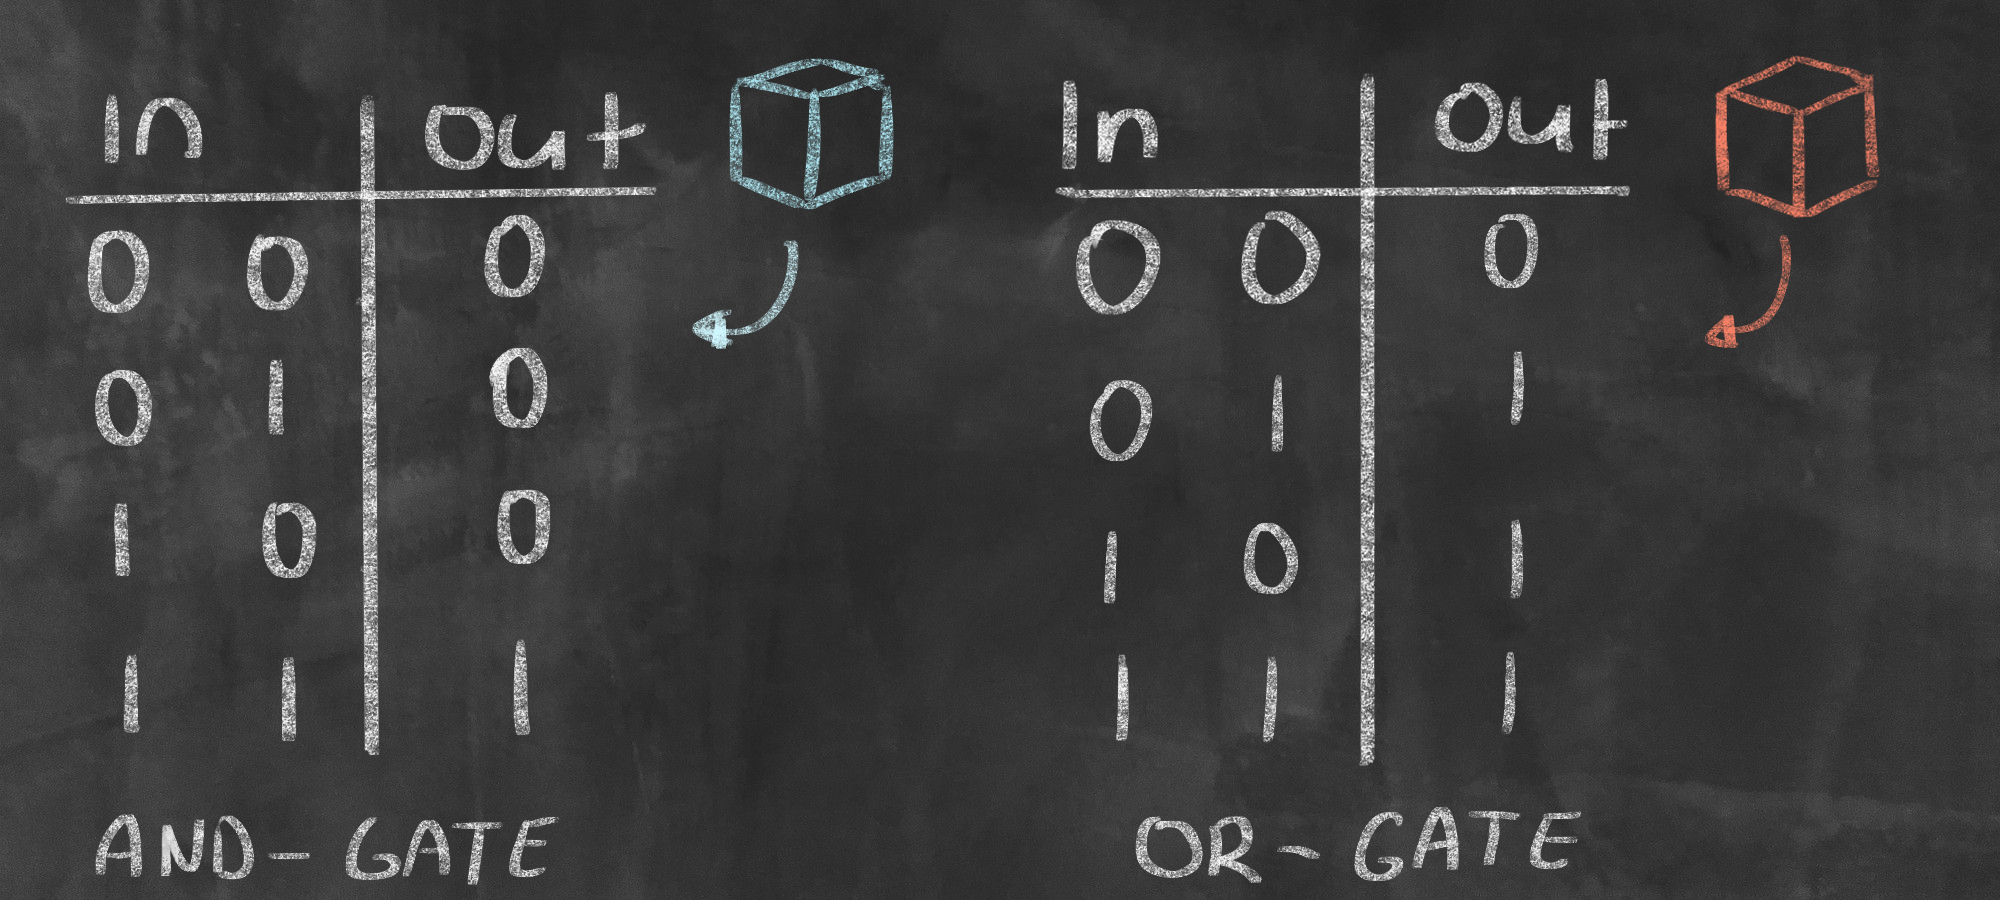 In Out
0 0 0
0 1 0
1 0 0
1 1 1
AND-GATE
In Out
0 0 0
0 1 1
1 0 1
1 1 1
OR-GATE